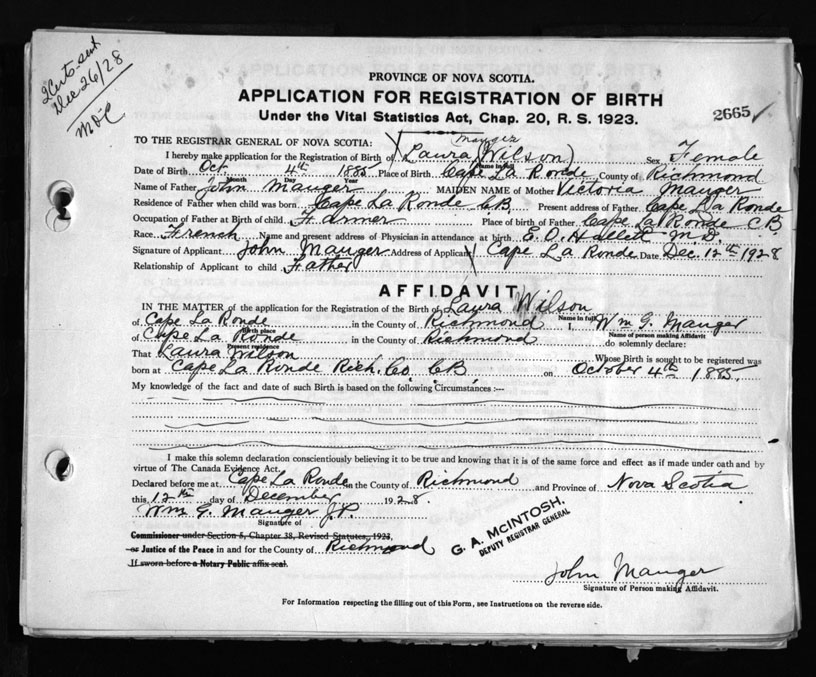 2 Certs sent
Dec 26/28
PROVINCE OF NOVA SCOTIA.
APPLICATION FOR REGISTRATION OF BIRTH
Under the Vital Statistics Act, Chap. 20, R. S. 1923.
2665
TO THE REGISTRAR GENERAL OF NOVA SCOTIA:
Mauger
I hereby make application for the Registration of Birth of Laura (Wilson) Sex Female
Name in full
Date of Birth Oct. 4th 1885 Place of Birth Cape La Ronde County of Richmond
Month Day Year
Name of Father John Mauger MAIDEN NAME of Mother Victoria Mauger
Residence of Father when child was born Cape La Ronde CB. Present address of Father Cape La Ronde
Occupation of Father at Birth of child Farmer Place of birth of Father Cape La Ronde CB
Race French Name and present address of Physician in attendance at birth E. O. M.D.
Signature of Applicant John Mauger Address of Applicant Cape La Ronde Date Dec. 12th 1928
Relationship of Applicant to child Father
AFFIDAVIT
IN THE MATTER of the application for Registration of the Birth of Laura Wilson
Name in full
of Cape La Ronde in the County of Richmond I, Wm G. Mauger
Birth place Name of person making Affidavit
of Cape La Ronde in the County of Richmond do solemnly declare:
Present residence
That Laura Wilson Whose Birth is sought to be registered was
born at Cape La Ronde Rich. Co. CB on October 4th 1885.
My knowledge of the fact and date of such Birth is based on the following Circumstances:—
I make this solemn declaration conscientiously believing it to be true and knowing that it is of the same force and effect as if made under oath and by
virtue of The Canada Evidence Act.
Declared before me at Cape La Ronde in the County of Richmond and Province of Nova Scotia
this 12th day of December 1928.
Wm G. Mauger J.P.
Signature of
Commissioner under Section 5, Chapter 38, Revised Statutes, 1923,
or Justice of the Peace in and for the County of Richmond
If sworn before a Notary Public affix seal.
G. A. McINTOSH,
DEPUTY REGISTRAR GENERAL
John Mauger
Signature of Person making Affidavit.
For Information respecting the filling out of this Form, see Instructions on the reverse side.